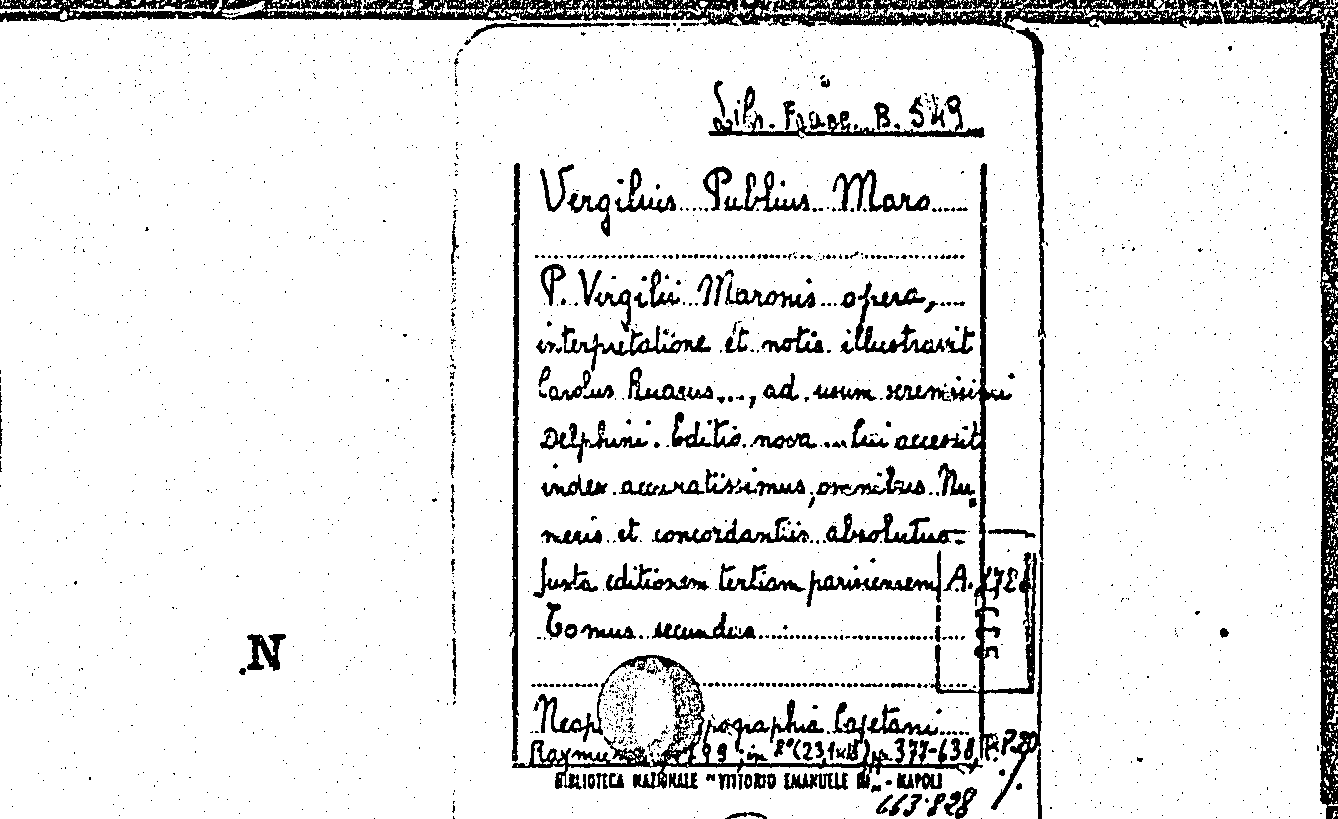 Libr. Franc. B. 549
Vergilius Publius Maro
P. Virgilii Maronis opera,
interpretatione et notis illustravit
Carolus Ruaeus..., ad usum serenissimi
Delphini. Editio nova ... Cui accessit
index accuratissimus, omnibus Nu
meris et concordantiis absolutus.
Juxta editionem tertiam parisiensem A.
Tomus secundus
N
pographia Cajetani
in 8° (23,1x18) pp. 377-638
BIBLIOTECA NAZIONALE "VITTORIO EMANUELE III" - NAPOLI
663.828